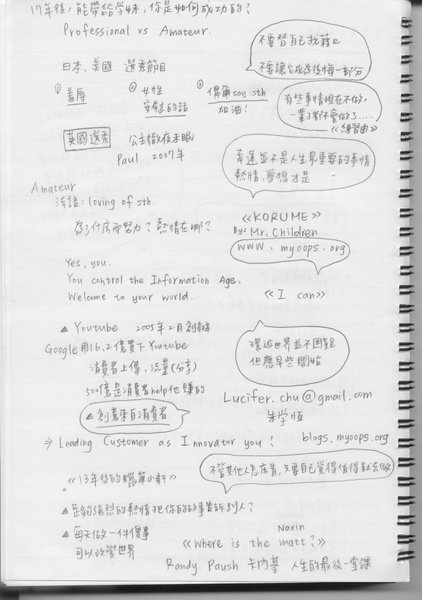 17年後,能帶給學妹,你是如何成功的?
Professional vs Amateur.
不要替自己找藉口
不要讓它成為後悔一部分
日本、美國 選秀節目
① 羞辱
② 女性 安慰的話
③ 偶爾 say sth 加油!
有些事情現在不做,
一輩子都不會做了...
《練習曲》
英國選秀 公主徹夜未眠
Paul 2007年
幸運並不是人生最重要的事情
熱情、夢想才是
Amateur
法語: loving of sth.
為了什麼而努力? 熱情在哪?
《KORUME》
By: Mr. Children
www.myoops.org
Yes, you.
You control the Information Age.
Welcome to your world.
《I can》
▲ Youtube 2005年2月創辦
Google用16.2億買下Youtube
消費者上傳,流量(分享)
500億是消費者help他賺的
▲ 創意來自消費者
環遊世界並不困難
但應早些開始
Lucifer.chu@gmail.com
朱學恆
→ Leading Customer as Innovator you! blogs.myoops.org
不管其他人怎麼看,只要自己覺得值得就去做
《13年後的》
▲ 足夠強烈的熱情把你的故事告訴別人?
▲ 每天做一件傻事
可以改變世界
Naxin
《Where is the matt?》
Randy Paush 卡內基 人生的最後一堂課